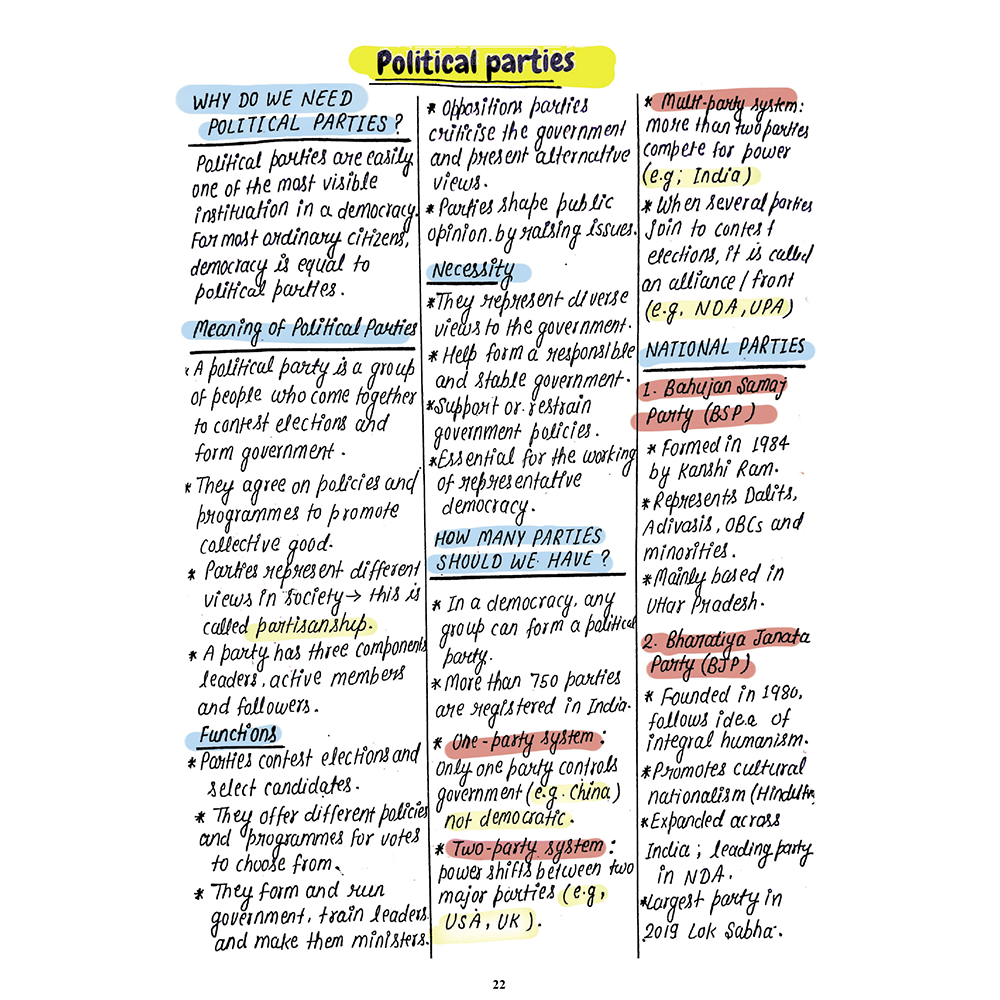 Political parties
WHY DO WE NEED
POLITICAL PARTIES?
Political parties are easily
one of the most visible
instituation in a democracy.
For most ordinary citizens,
democracy is equal to
political parties.
Meaning of Political Parties
* A political party is a group
of people who come together
to contest elections and
form government.
* They agree on policies and
programmes to promote
collective good.
* Parties represent different
views in society → this is
called partisanship.
* A party has three components
leaders, active members
and followers.
Functions
* Parties contest elections and
select candidates.
* They offer different policies
and programmes for votes
to choose from.
* They form and run
government, train leaders
and make them ministers.
* Oppositions parties
criticise the government
and present alternative
views.
* Parties shape public
opinion. by raising issues.
Necessity
* They represent diverse
views to the government.
* Help form a responsible
and stable government.
* Support or restrain
government policies.
* Essential for the working
of representative
democracy.
HOW MANY PARTIES
SHOULD WE HAVE?
* In a democracy, any
group can form a political
party.
* More than 750 parties
are registered in India.
* One-party system:
Only one party controls
government (e.g. China)
not democratic.
* Two-party system:
power shifts between two
major parties (e.g,
USA, UK).
* Multi-party system:
more than two parties
compete for power
(e.g; India)
* When several parties
join to contest
elections, it is called
an alliance / front
(e.g. NDA, UPA)
NATIONAL PARTIES
1. Bahujan Samaj
Party (BSP)
* Formed in 1984
by Kanshi Ram.
* Represents Dalits,
Adivasis, OBCs and
minorities.
* Mainly based in
Uttar Pradesh.
2. Bharatiya Janata
Party (BJP)
* Founded in 1980,
follows idea of
integral humanism.
* Promotes cultural
nationalism (
* Expanded across
India; leading party
in NDA.
* Largest party in
2019 Lok Sabha.
22